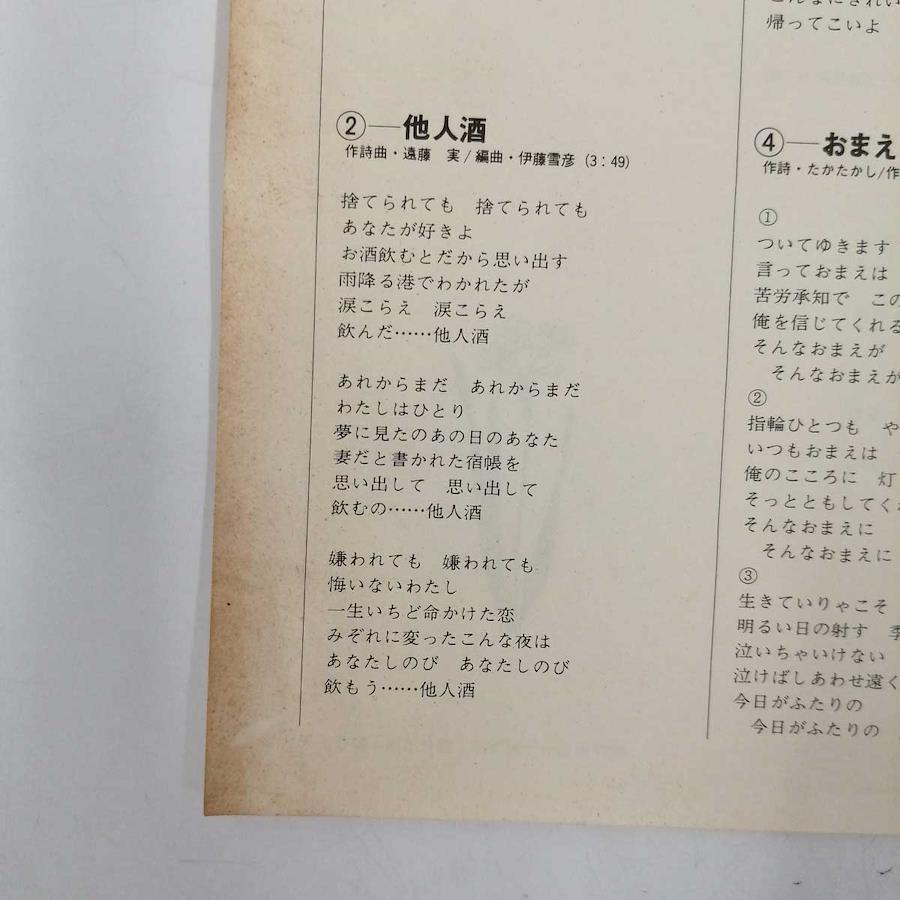 ②―他人酒
作詩曲・遠藤　実/編曲・伊藤雪彦 (3：49)
捨てられても　捨てられても
あなたが好きよ
お酒飲むとだから思い出す
雨降る港でわかれたが
涙こらえ　涙こらえ
飲んだ……他人酒
あれからまだ　あれからまだ
わたしはひとり
夢に見たのあの日のあなた
妻だと書かれた宿帳を
思い出して　思い出して
飲むの……他人酒
嫌われても　嫌われても
悔いないわたし
一生いちど命かけた恋
みぞれに変ったこんな夜は
あなたしのび　あなたしのび
飲もう……他人酒
帰ってこいよ
④―おまえ
作詩・たかたかし/作
①
ついてゆきます
言っておまえは
苦労承知で　この
俺を信じてくれる
そんなおまえが
そんなおまえが
②
指輪ひとつも　や
いつもおまえは
俺のこころに　灯
そっとともしてくれ
そんなおまえに
そんなおまえに
③
生きていりゃこそ
明るい日の射す　季
泣いちゃいけない
泣けばしあわせ遠く
今日がふたりの
今日がふたりの